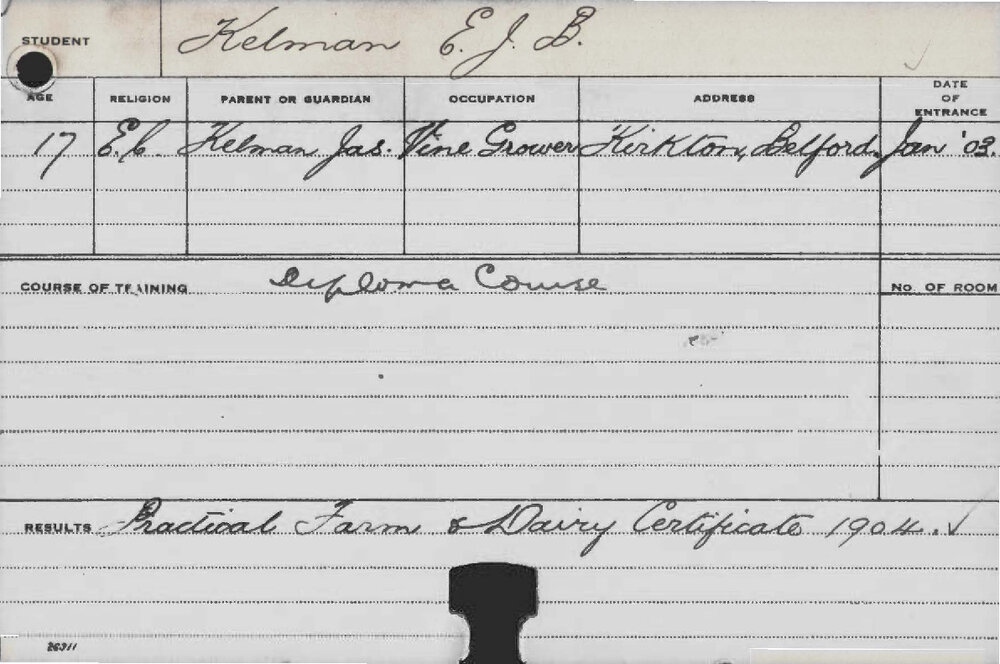 STUDENT Kelman E. J. B.
AGE RELIGION PARENT OR GUARDIAN OCCUPATION ADDRESS DATE OF ENTRANCE
17 E.C. Kelman Jas. Vine Grower Kirkton, Belford. Jan '03.
COURSE OF TRAINING Diploma Course No. OF ROOM
RESULTS Practical Farm & Dairy Certificate 1904. ✓
26311